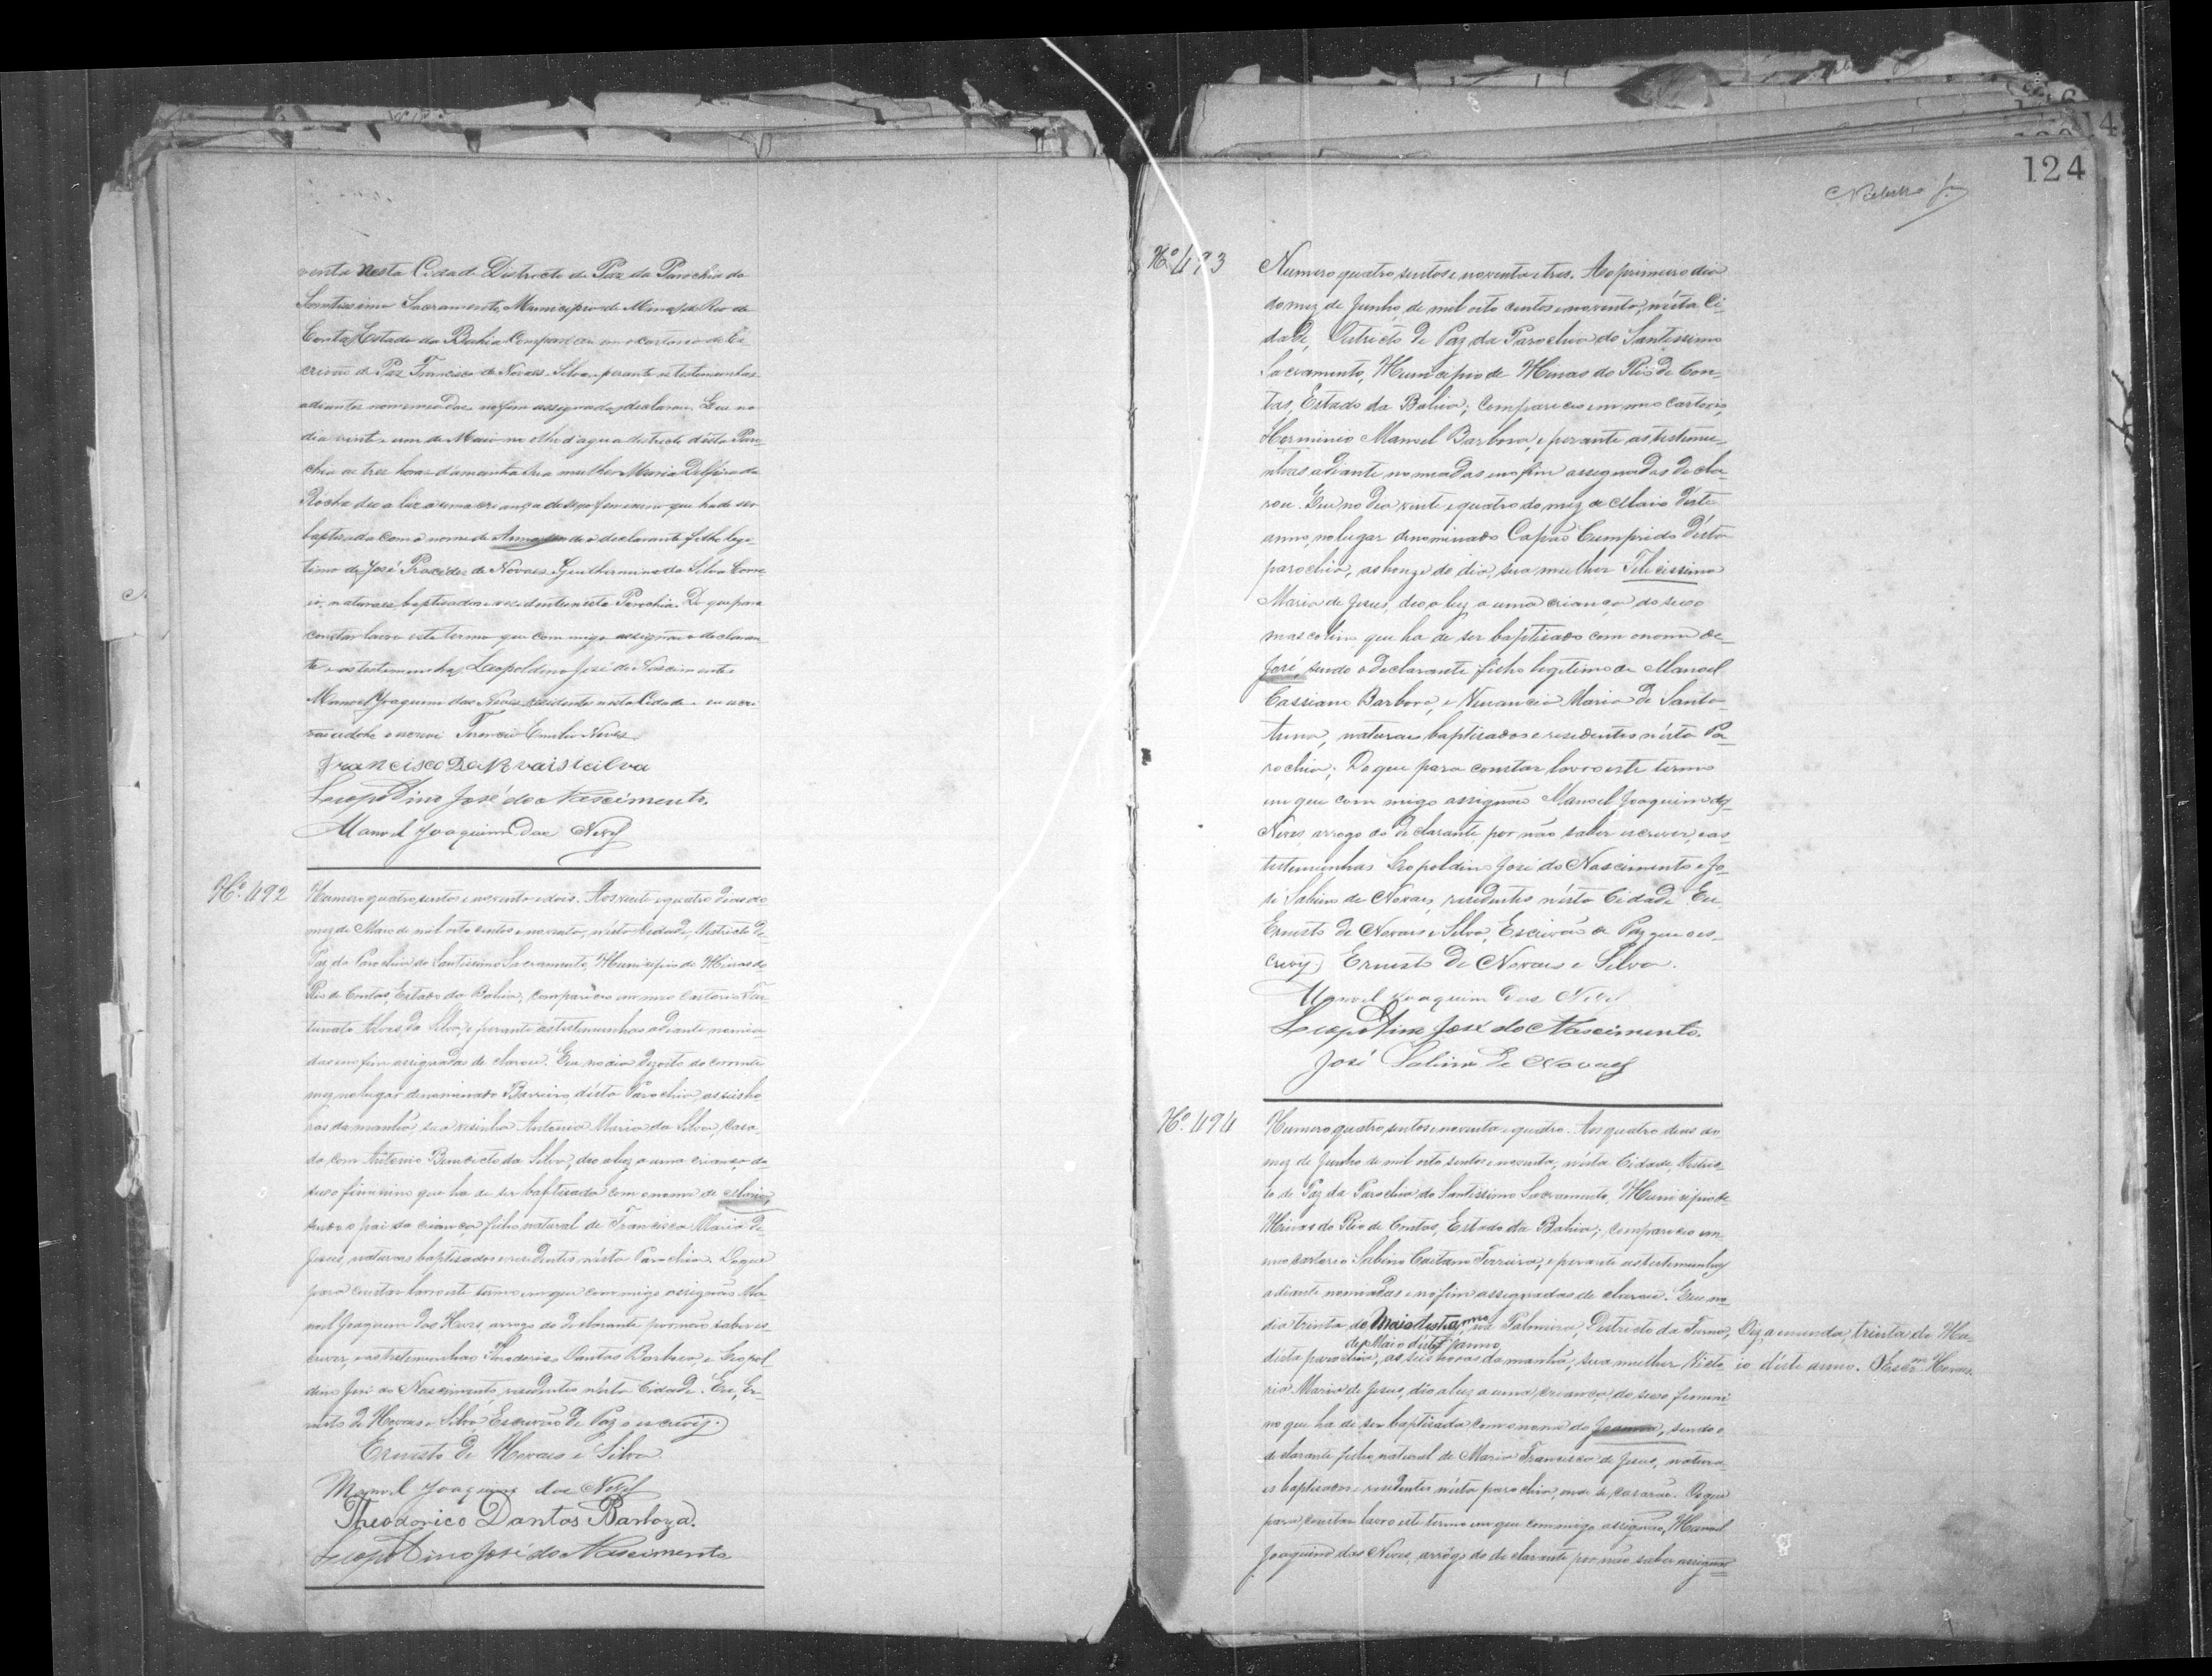 venta nesta Cidade Districto de Paz da Parochia do
Santissimo Sacramento, Municipio de Minas do Rio de
Contas, Estado da Bahia Compareceu em o cartorio do Es
crivão de Paz Francisco de Novaes Silva, perante as testemunhas
adiantes nomeiadas no fim assignadas, declarou. Que no
dia vinte e um de Maio no olho d'agua districto désta Paro
chia as tres horas d'amanhã sua mulher Maria Delfina da
Rocha deo a luz a uma criança do sexo feminino que hade ser
baptisada com o nome de o declarante filho legi
timo de José Procides de Novaes Guilhermina da Silva
naturaes baptisados e residentes nesta Parochia. Do que para
constar lavro este termo que com migo assignão o declaran
te e as testemunhas Leopoldino José do Nascimento e
Manoel Joaquim das Neves residente nesta Cidade e eu escri
vão o escrevi Terencio Emilio Neves
Francisco De Novais i cilva
Leopoldino José do Nascimento.
Manoel Joaquim das Neves
Nº. 492
Numero quatro sentos e noventa e dois. Aos vinte e quatro dias do
mez de Maio de mil oito centos e noventa, nésta Cidade, Districto de
Paz da Parochia do Santissimo Sacramento, Municipio de Minas do
Rio de Contas, Estado da Bahia, compareceo em meo Cartorio For
tunato Alves da Silva, e perante as testemunhas adiante nomea
das e no fim assignadas declarou. Que no dia dezoito do corrente
mez no lugar denominado Barreiro, désta Parochia as seis ho
ras da manhã, sua visinha Antonia Maria da Silva, casa
da com Antonio Benedicto da Silva, deo a luz a uma criança do
sexo feminino que ha de ser baptisada com o nome de Maria,
sendo o pai da criança filho natural de Francisca Maria de
Jesus, naturaes baptisados e residentes nésta Parochia. Do que
para constar lavro este termo em que com migo assignão Ma
noel Joaquim das Neves, arrogo do declarante por não saber es
crever, e as testemunhas Theodorico Dantas Barboza, e Leopol
dino José do Nascimento, residentes nésta Cidade. Eu, Er
nesto de Novaes e Silva, Escrivão de Paz o escrevij.
Ernesto de Novaes e Silva
Manoel Joaquim das Neves
Theodorico Dantas Barboza.
Leopoldino José do Nascimento
124
Nº. 493
Numero quatro sentos e noventa e tres. Ao primeiro dia
do mez de Junho, de mil oito centos e noventa, nésta Ci-
dade, Districto de Paz da Parochia do Santissimo
Sacramento, Municipio de Minas do Rio de Con-
tas, Estado da Bahia; compareceo em meo cartorio,
Herminio Manoel Barbosa, e perante as testemu-
nhas adiante nomeadas e no fim assignadas decla-
rou. Que no dia vinte e quatro do mez de Maio déste
anno, no lugar denominado Capão Cumprido désta
parochia, as honze do dia, sua mulher Felicissima
Maria de Jesus, deo a luz a uma criança do sexo
mascolino que ha de ser baptisado com o nome de
José, sendo o declarante filho legitimo de Manoel
Cassiano Barbosa, e Venancia Maria de Santa-
Anna, naturaes baptisados e residentes nésta Pa-
rochia; Do que para constar lavro este termo
em que com migo assignão Manoel Joaquim das
Neves, arrogo do declarante, por não saber escrever, e as
testemunhas Leopoldino José do Nascimento e Jo-
sé Sabino de Novaes, residentes nésta Cidade. Eu
Ernesto de Novaes e Silva, Escrivão de Paz que o es-
crevij. Ernesto de Novaes e Silva.
Manoel Joaquim das Neves
Leopoldino José do Nascimento.
José Sabino de Novaes
Nº. 494
Numero quatro sentos e noventa e quatro. Aos quatro dias do
mez de Junho de mil oito sentos e noventa, nésta Cidade, Distric-
to de Paz da Parochia do Santissimo Sacramento, Municipio de
Minas do Rio de Contas, Estado da Bahia; compareceo em
meo cartorio Sabino Caetano Ferreira, e perante as testemunhas
adiante nomiadas e no fim assignadas declarou. Que no
dia trinta de Maio deste anno, na Palmeira, Districto da Furna,
de Maio déste anno
Diz a emenda, trinta de Ma-
io déste anno. O Escr.m Novaes
désta parochia, as seis horas da manhã, sua mulher Victo
ria Maria de Jesus, deo a luz a uma criança do sexo femini
no que ha de ser baptisada com o nome de Joanna, sendo o
declarante filho natural de Maria Francisca de Jesus, natura
es baptisados e residentes nésta parochia, onde se casarão. Do que
para constar lavro este termo em que com migo assignão, Manoel
Joaquim das Neves, arrôgo do declarante por não saber assignar